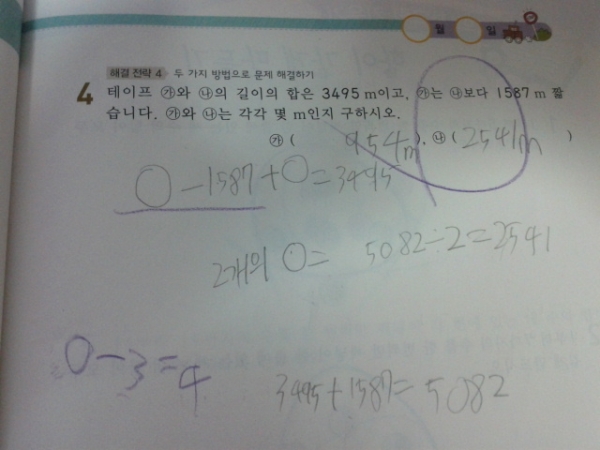 월 일
해결 전략 4 두 가지 방법으로 문제 해결하기
4 테이프 ㉮와 ㉯의 길이의 합은 3495 m이고, ㉮는 ㉯보다 1587 m 짧
습니다. ㉮와 ㉯는 각각 몇 m인지 구하시오.
㉮ ( 954m ), ㉯ ( 2541m )
○-1587+○=3495
2개의 ○= 5082÷2=2541
○-3=4
3495+1587=5082